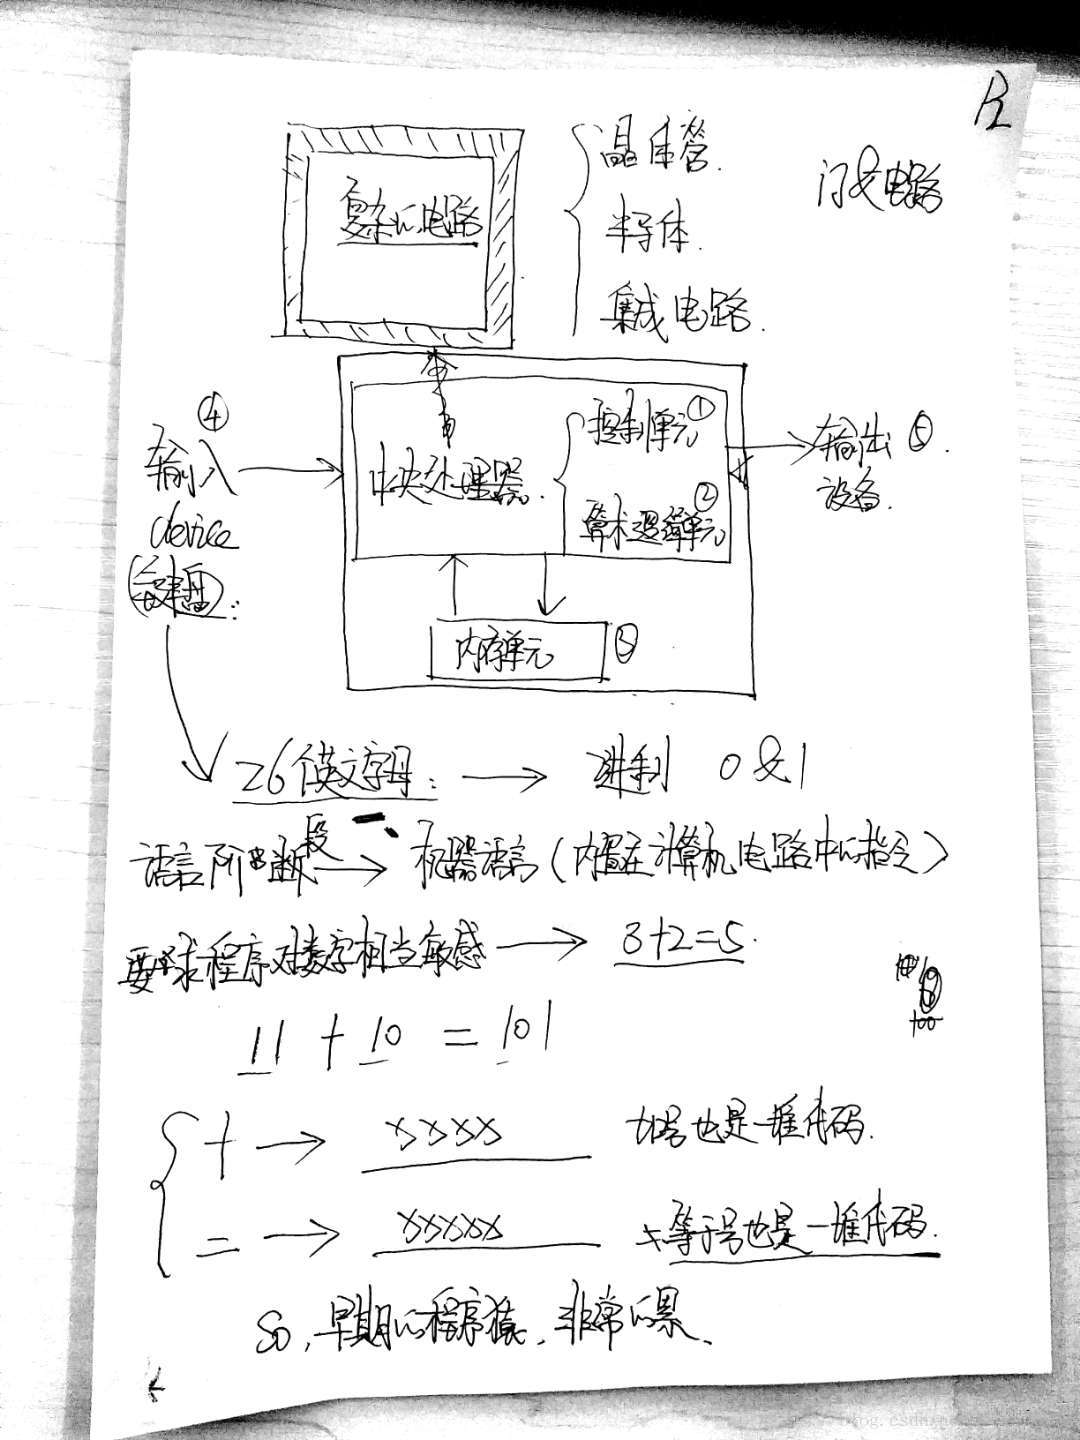 P2
晶体管.
门电路
复杂的电路
半导体.
集成电路.
④
输入
device
(键盘):
中央处理器.
控制单元①
算术逻辑单元②
输出⑤.
设备.
内存单元 ③
26个英文字母: → 进制 0&1
语言阶断段 → 机器语言(内置在计算机电路中的指令)
要求程序对数字相当敏感 → 3+2=5.
11 + 10 = 101
100
+ → xxxx 加号也是一堆代码.
= → xxxxx 等于号也是一堆代码.
So, 早期的程序猿, 非常的累.